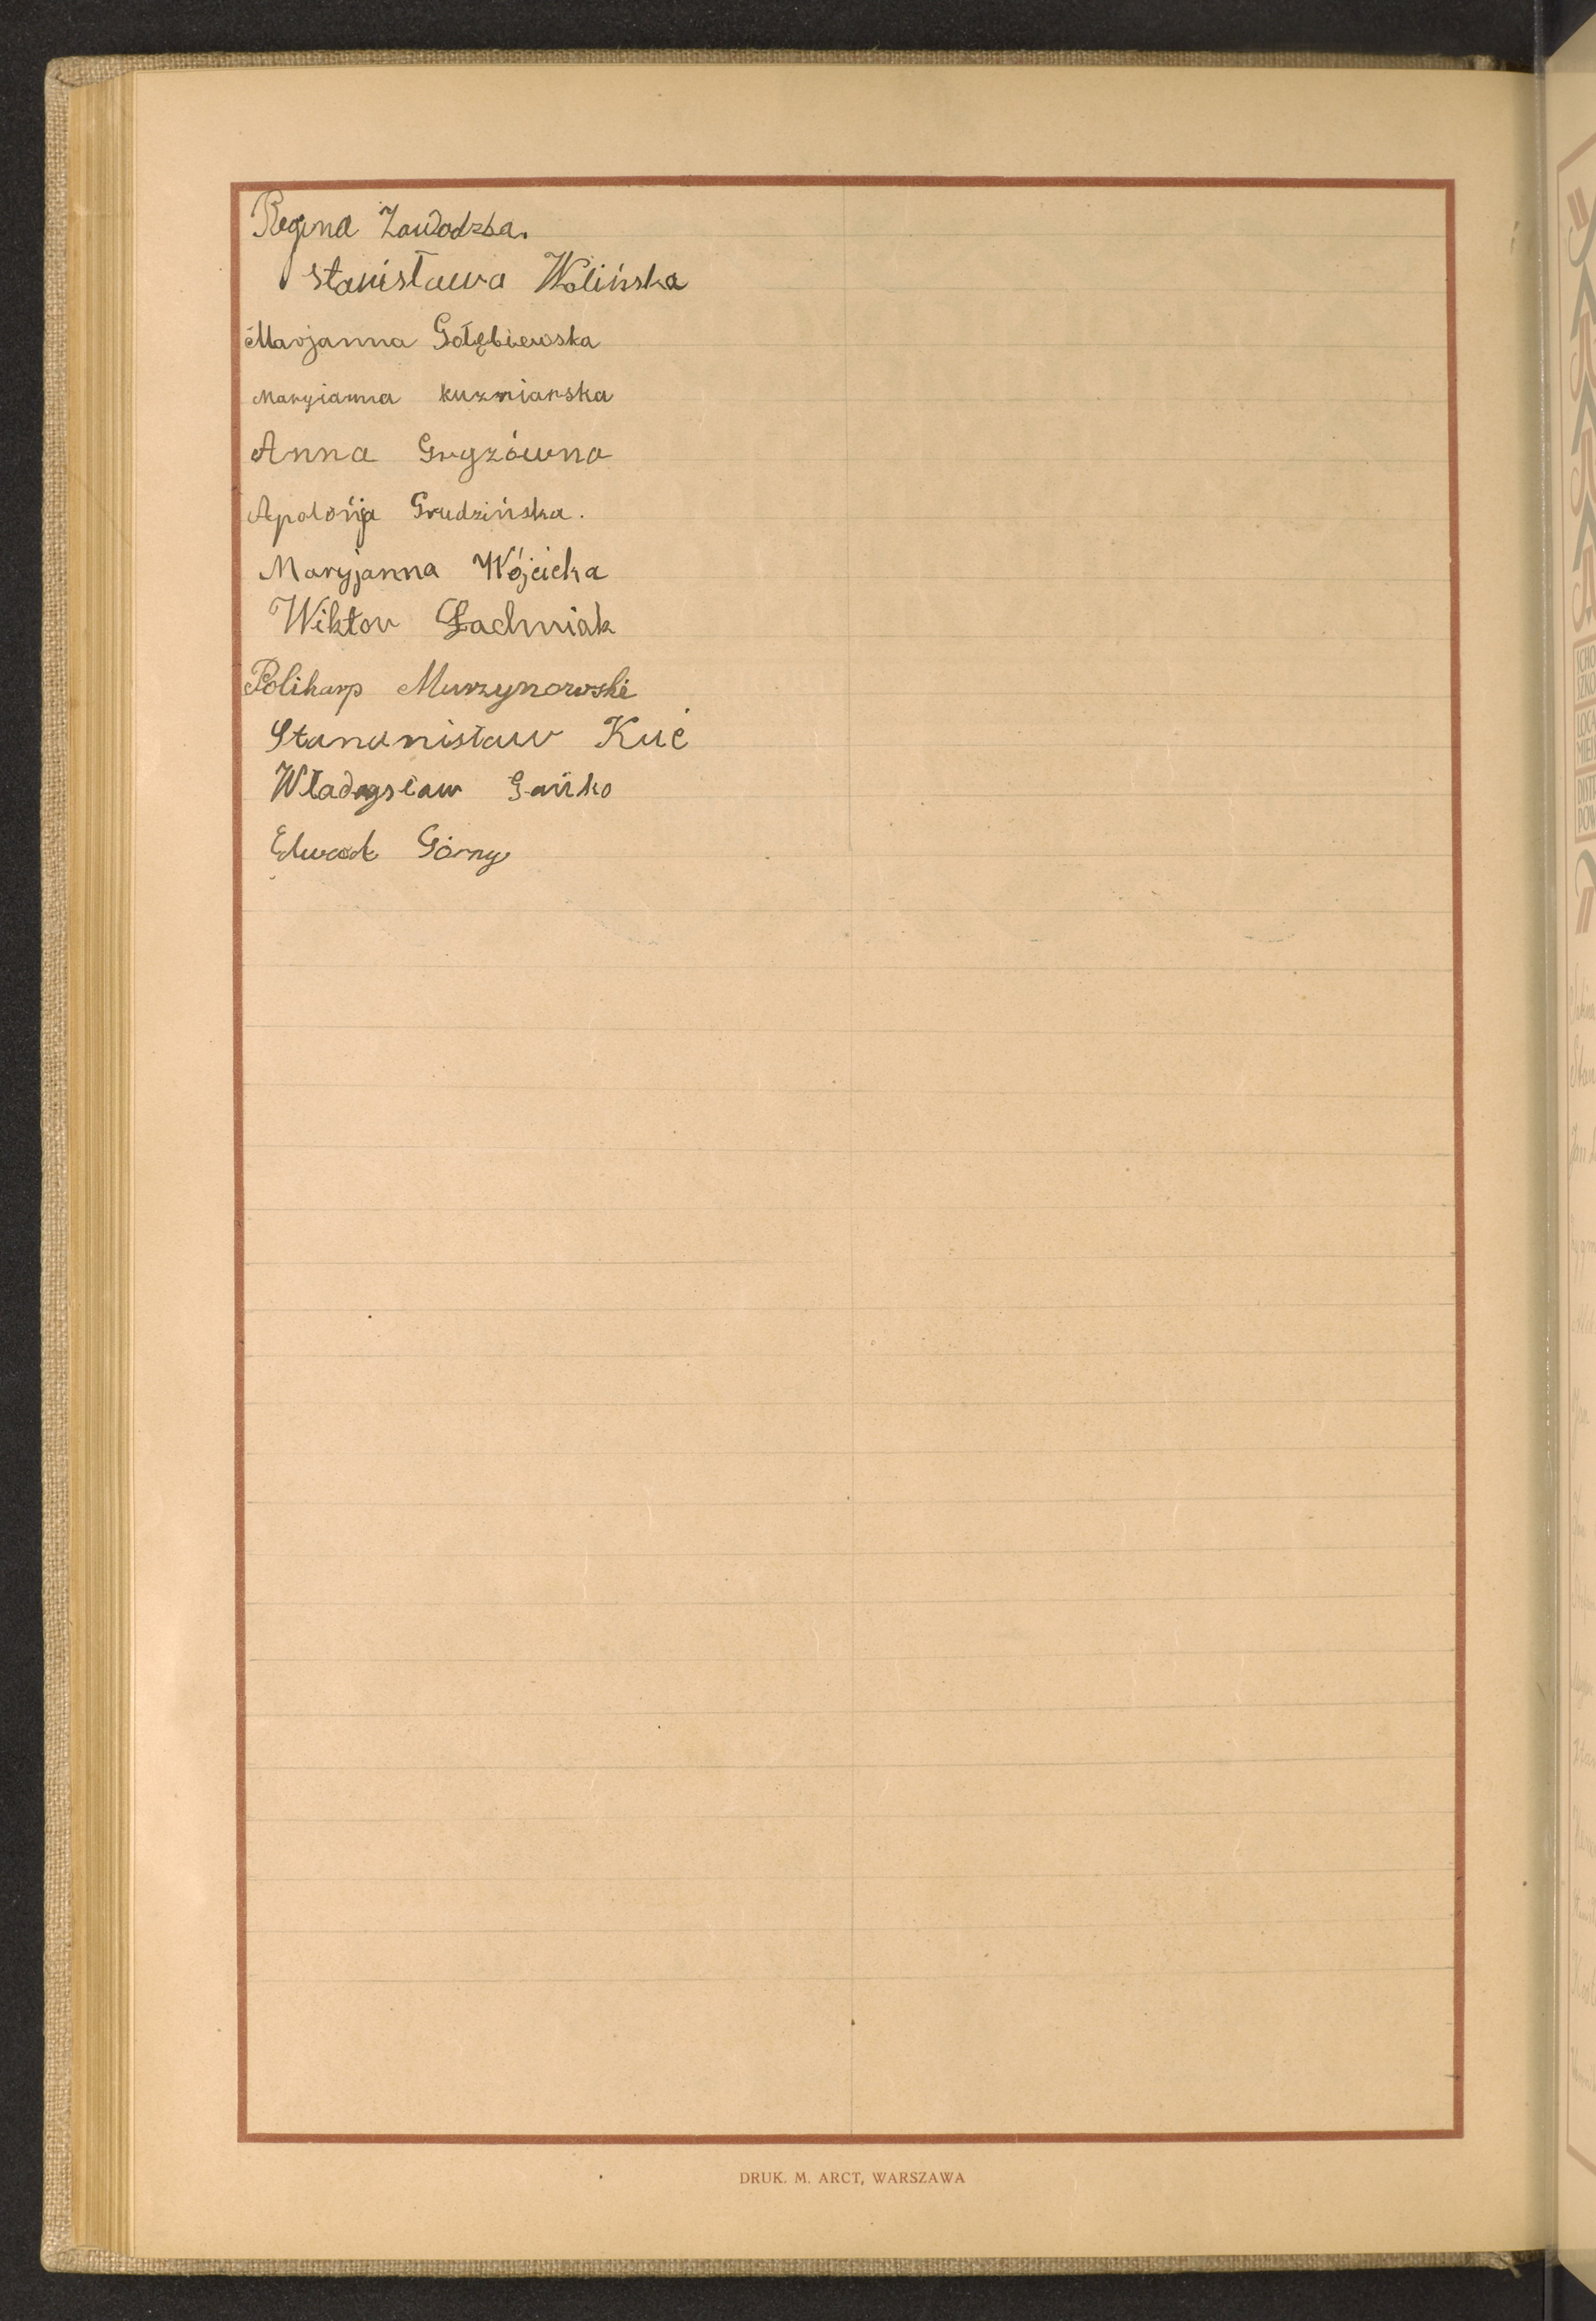 Regina Zawodzka.
Stanisława Wolińska
Marjanna Gołębiewska
Maryianna kuzmiarska
Anna Gryzówna
Apolońja Grudzińska.
Maryjanna Wójcicka
Wiktor Łachniak
Polikarp Murzynowski
Stananisław Kuć
Władysław Gańko
Edward Górny
DRUK. M. ARCT, WARSZAWA